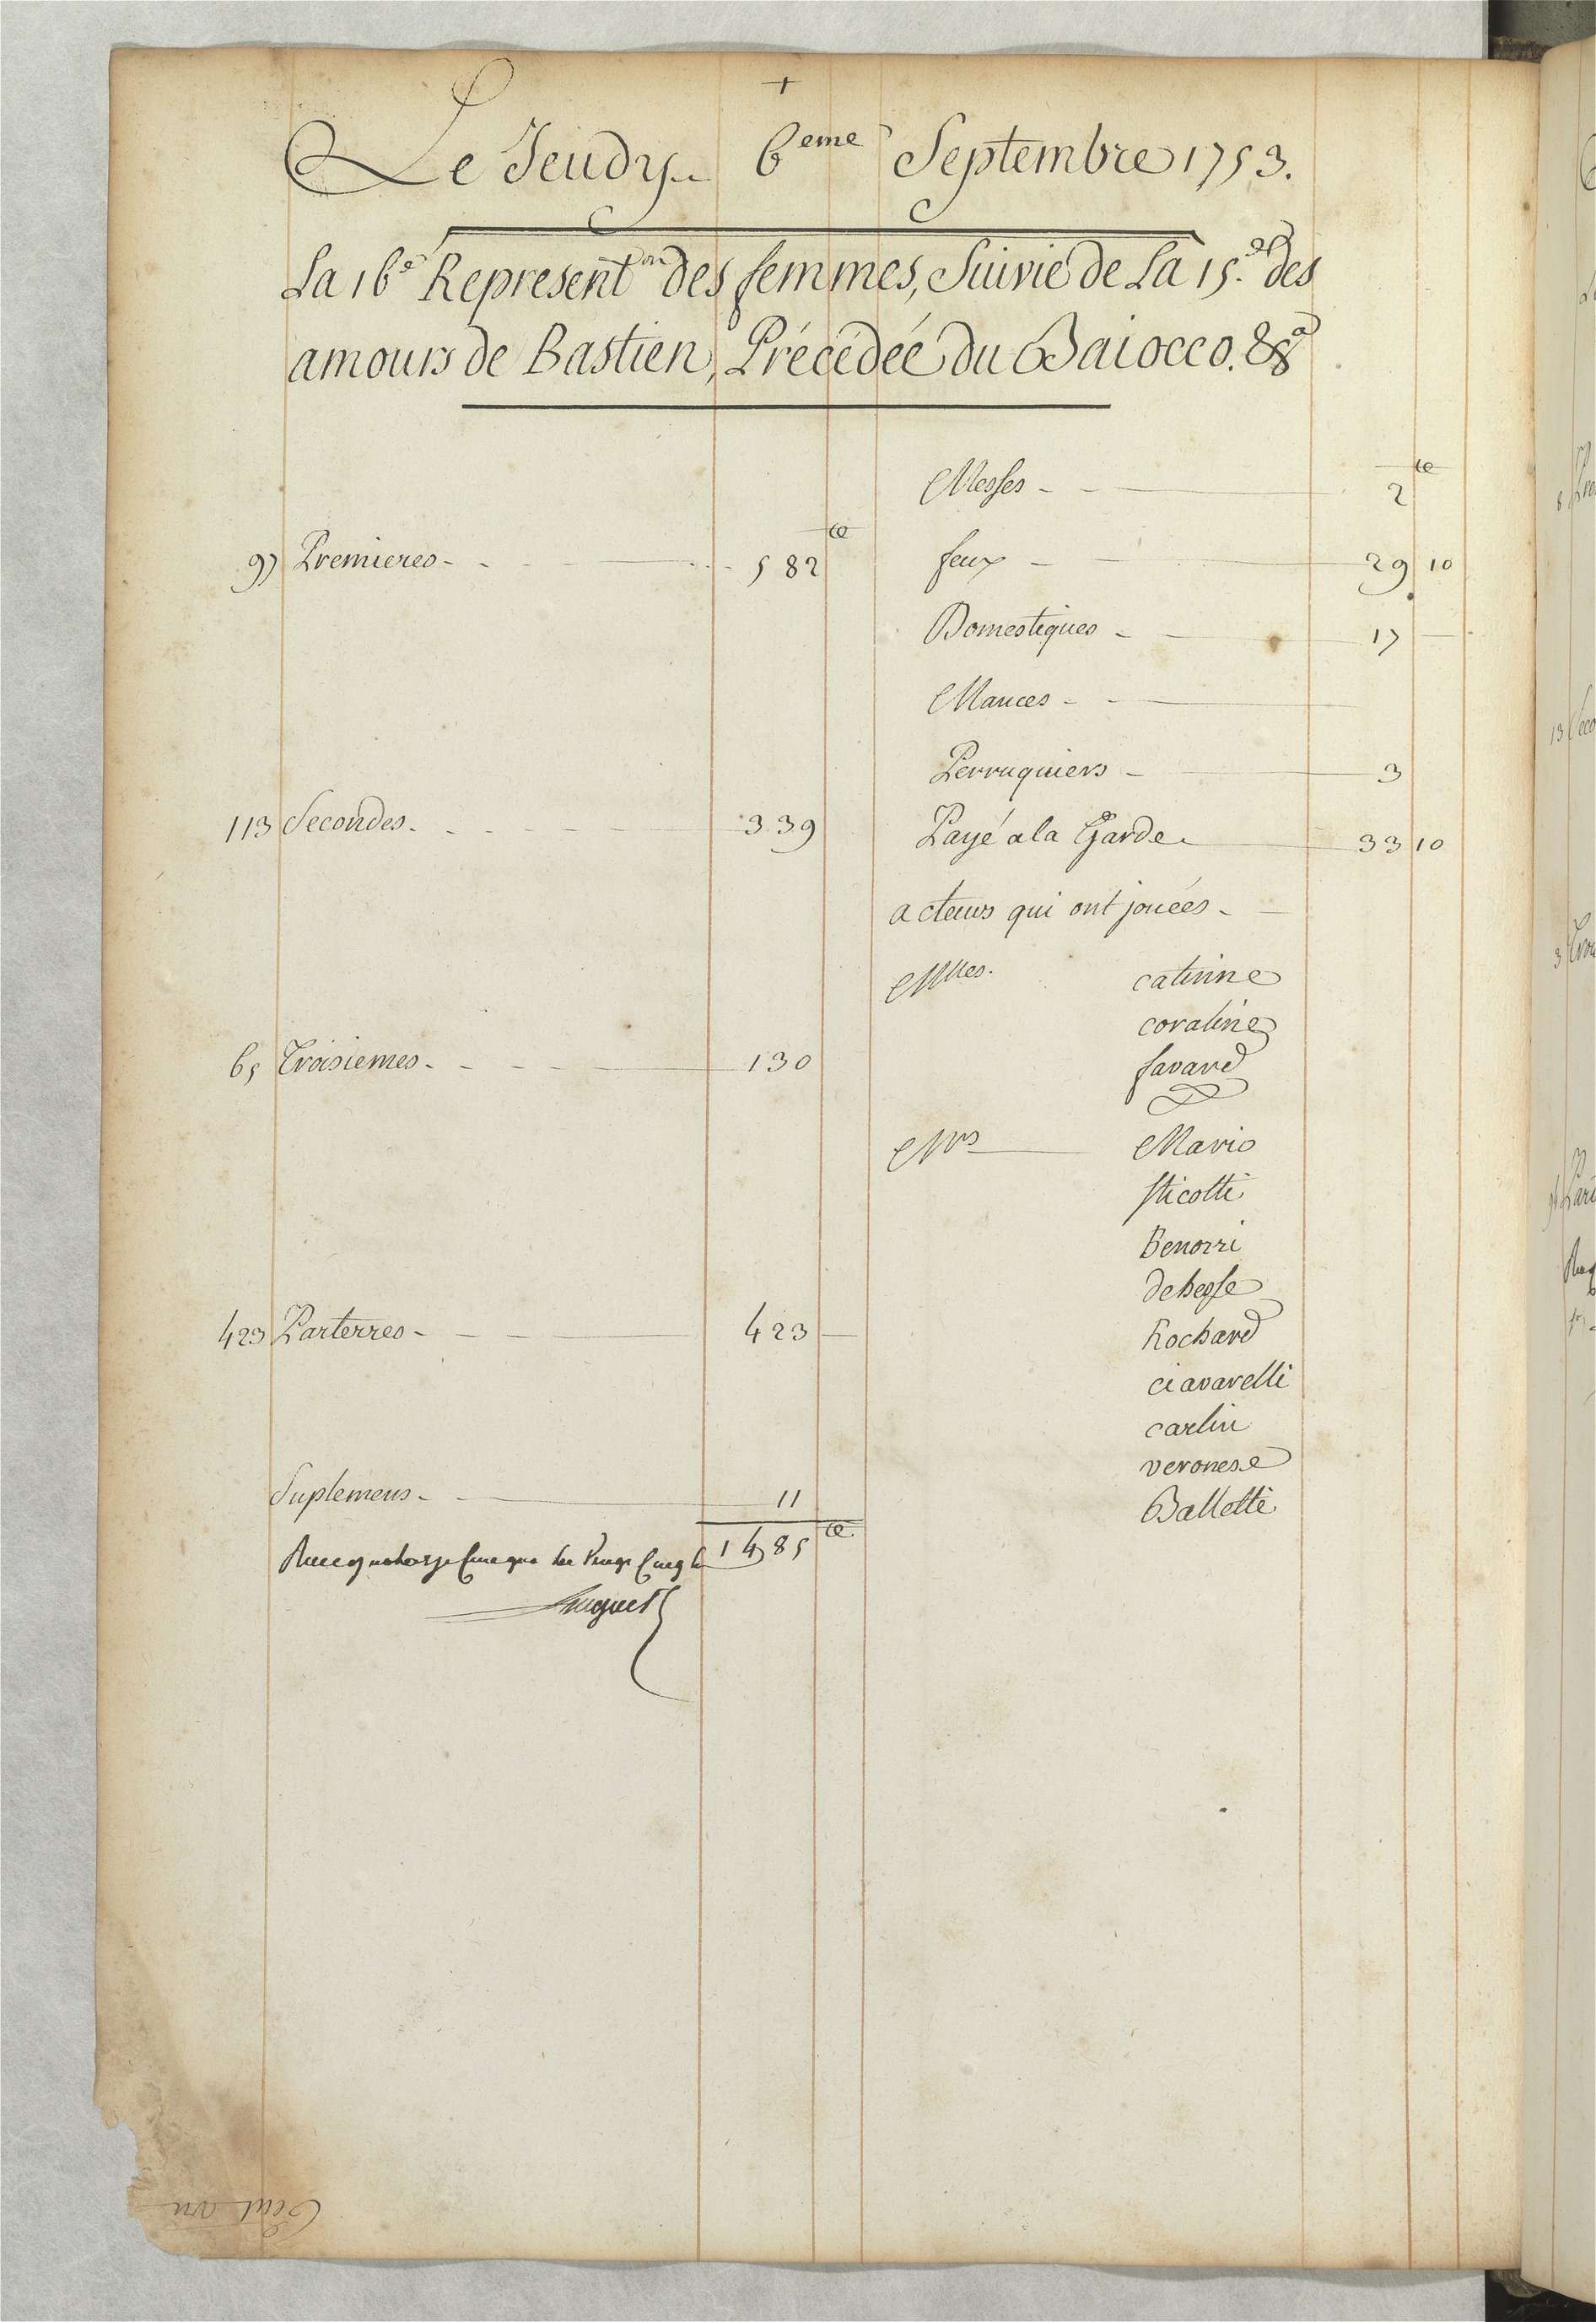 +
Le Jeudy 6eme Septembre 1753.
La 16e Represent.on des femmes, Suivie de La 15.e des
amours de Bastien, Précédée du Baiocco. &a
Messes - - 2 tt
97 Premieres - - 582 tt
feux - 29 10
Domestiques - 17 -
Mances - -
Perruquiers - 3
113 Secondes - 339
Payé a la Garde 33 10
acteurs qui ont jouées -
Mlles. catinne
coraline
favard
65 Troisiemes - 130
Mrs Mario
Sticotti
Benozzi
dehesse
Rochard
ciavarelli
carlin
veronese
Balletti
423 Parterres - 423 -
Suplemens - 11
1485 tt
Huguet
Cent un